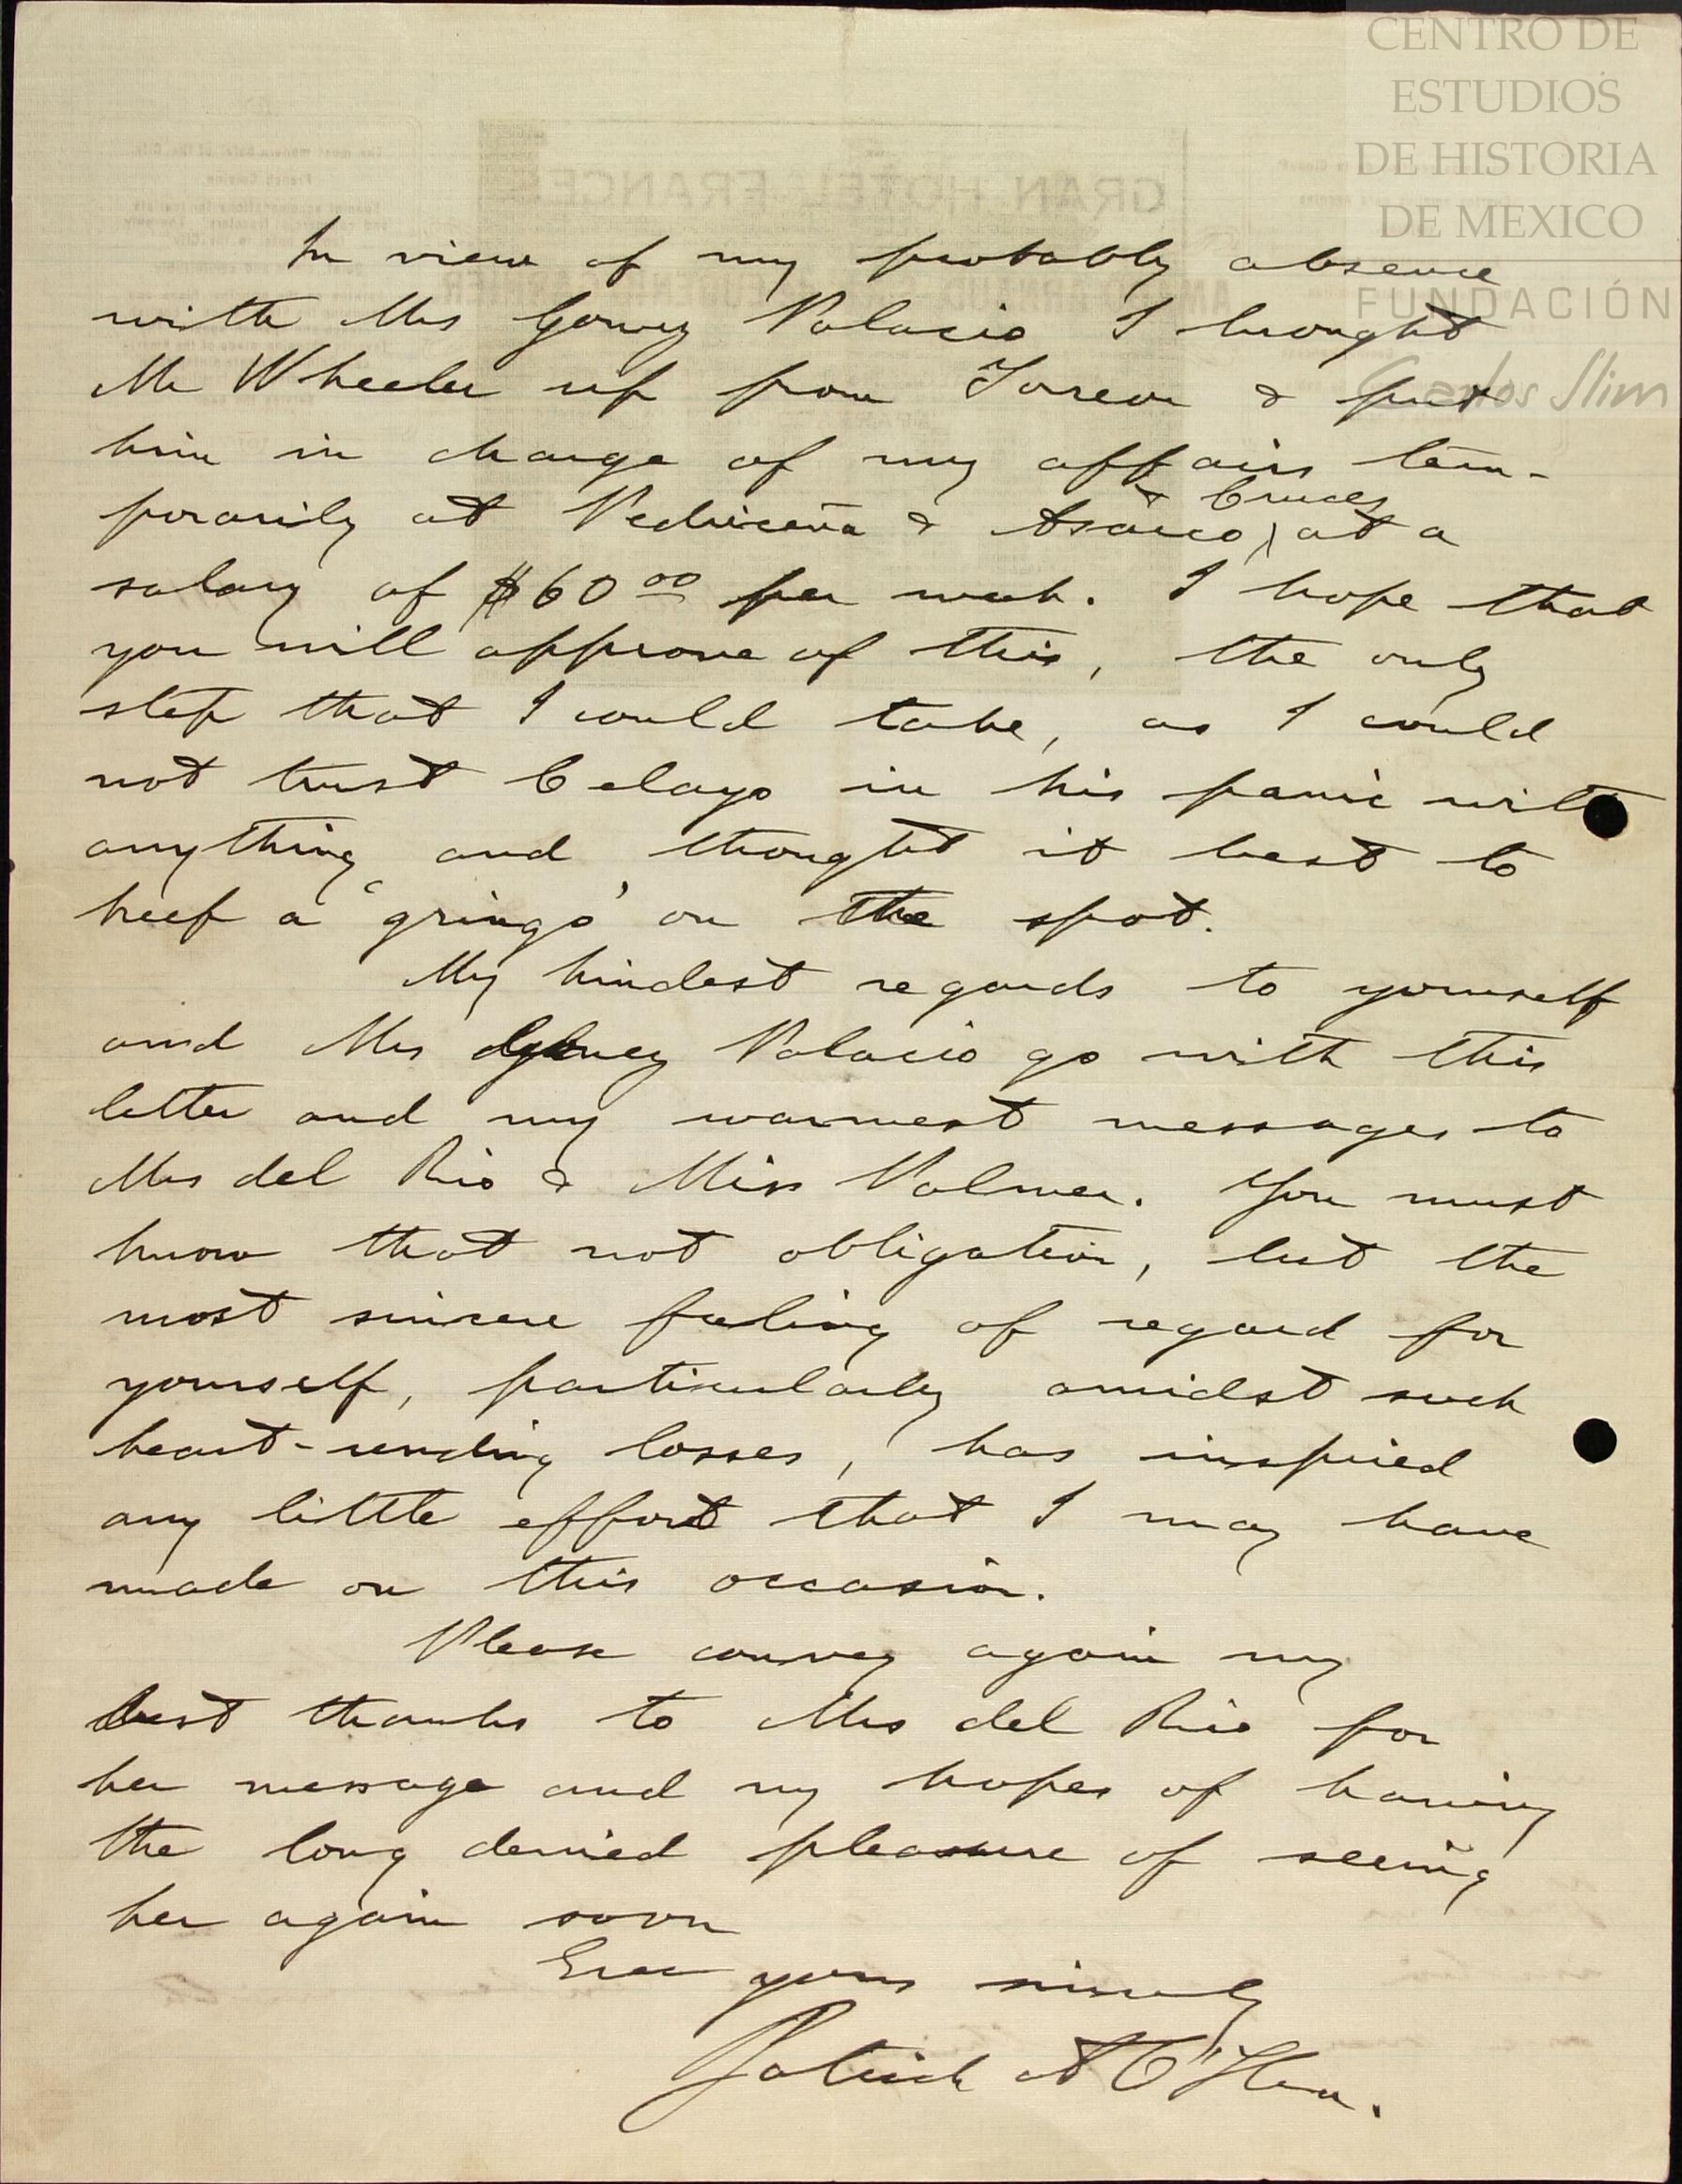 CENTRO DE
ESTUDIOS
DE HISTORIA
DE MEXICO
FUNDACIÓN
Carlos Slim
GRAN HOTEL FRANCES
In view of my probably absence
with Mrs Gomez Palacio I brought
Mr Wheeler up from Torreon & put
him in charge of my affairs tem-
porarily at Pedriceña & Asarco, & Cruces at a
salary of $60 00 per week. I hope that
you will approve of this, the only
step that I could take, as I could
not trust Celayo in his panic with
anything and thought it best to
keep a 'gringo' on the spot.
My kindest regards to yourself
and Mrs Gomez Palacio go with this
letter and my warmest messages to
Mrs del Rio & Miss Palmer. You must
know that not obligation, but the
most sincere feeling of regard for
yourself, particularly amidst such
heart-rending losses, has inspired
any little effort that I may have
made on this occasion.
Please convey again my
best thanks to Mrs del Rio for
her message and my hopes of having
the long denied pleasure of seeing
her again soon
Ever yours sincerely
Patrick A O'Hea.